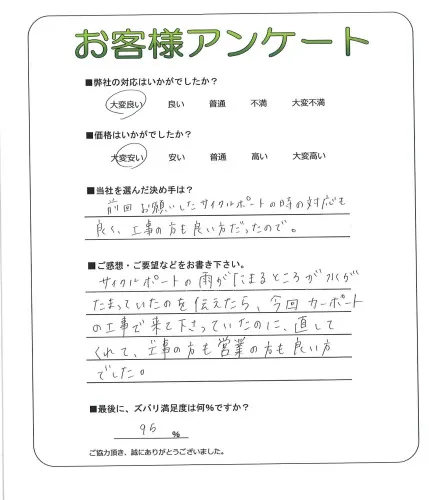 お客様アンケート
■弊社の対応はいかがでしたか?
大変良い 良い 普通 不満 大変不満
■価格はいかがでしたか?
大変安い 安い 普通 高い 大変高い
■当社を選んだ決め手は?
前回お願いしたサイクルポートの時の対応も
良く、工事の方も良い方だったので。
■ご感想・ご要望などをお書き下さい。
サイクルポートの雨がたまるところが水が
たまっていたのを伝えたら、今回カーポート
の工事で来て下さっていたのに、直して
くれて、工事の方も営業の方も良い方
でした。
■最後に、ズバリ満足度は何%ですか?
95 %
ご協力頂き、誠にありがとうございました。